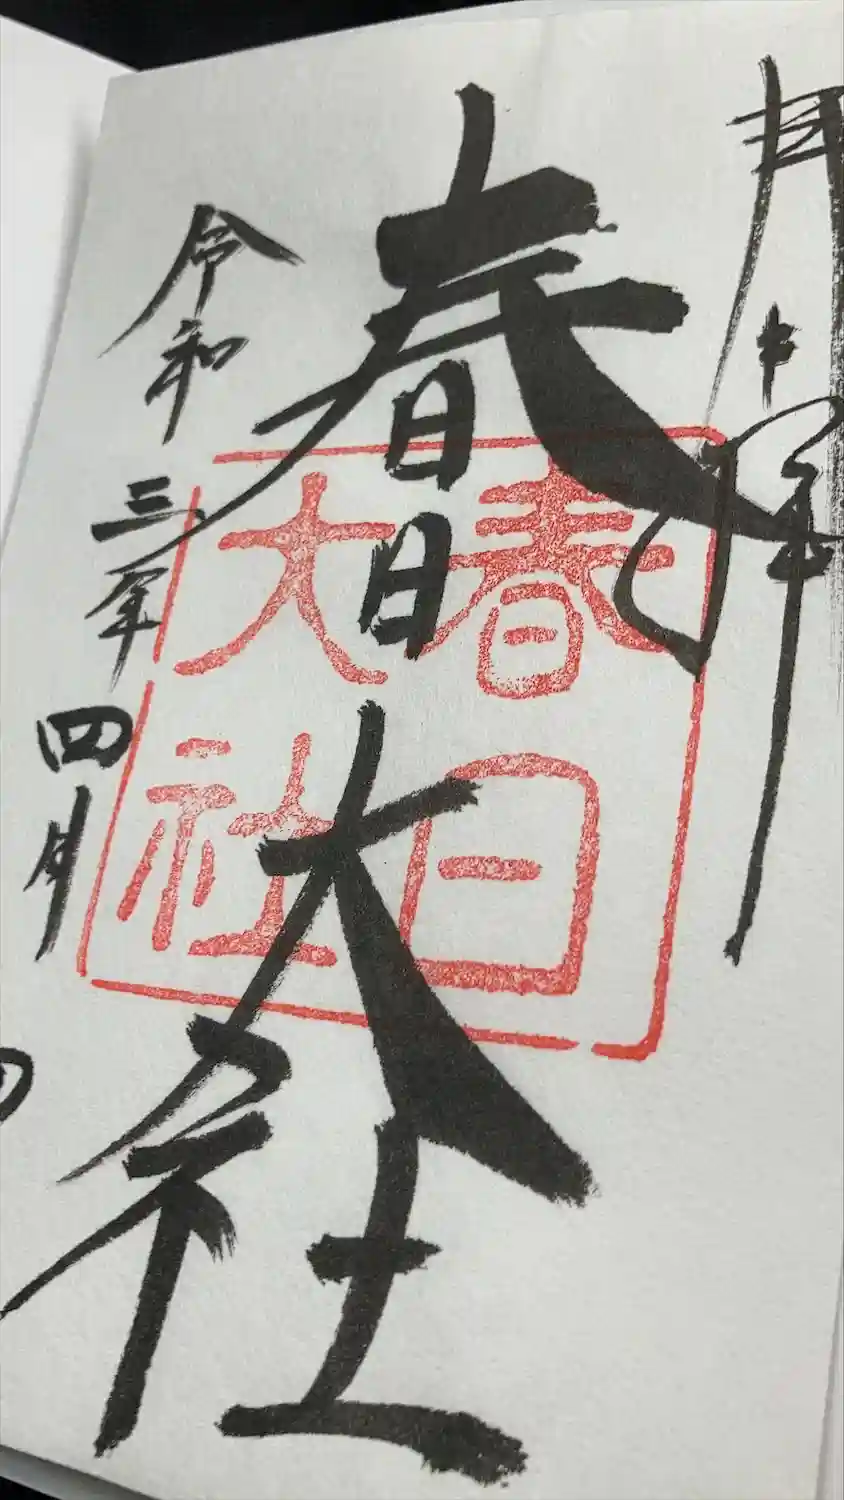 春日大社
春日
大社
令和三年四月